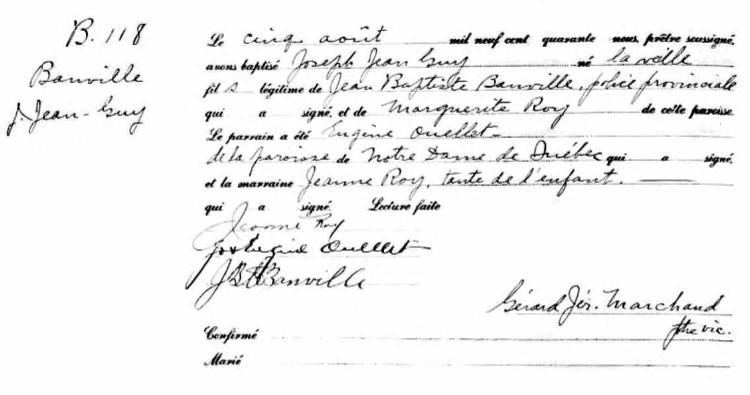 B. 118
Banville
J. Jean-Guy
Le cinq août mil neuf cent quarante nous, prêtre soussigné,
avons baptisé Joseph Jean Guy né la veille
fils légitime de Jean Baptiste Banville, police provinciale
qui a signé, et de Marguerite Roy de cette paroisse.
Le parrain a été Eugène Ouellet
de la paroisse de Notre Dame de Québec qui a signé,
et la marraine Jeanne Roy, tante de l'enfant.
qui a signé. Lecture faite
Jeanne Roy
Jos Eugène Ouellet
J B Banville
Gérard Jér. Marchand
ptre vic.
Confirmé
Marié